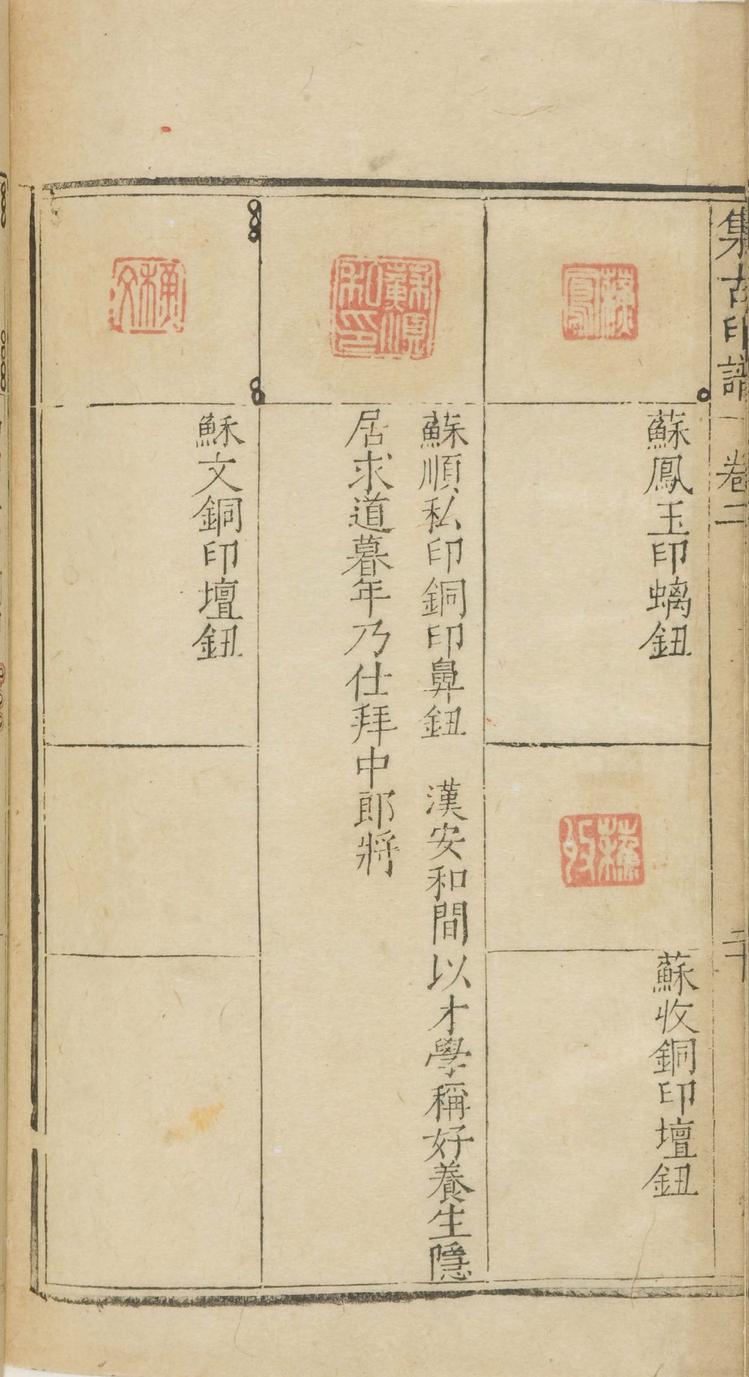 集古印譜 卷二
二十
蘇鳳
蘇鳳玉印螭鈕
蘇收
蘇收銅印壇鈕
蘇順私印
蘇順私印銅印鼻鈕 漢安和間以才學稱好養生隱
居求道暮年乃仕拜中郎將
穌文
穌文銅印壇鈕